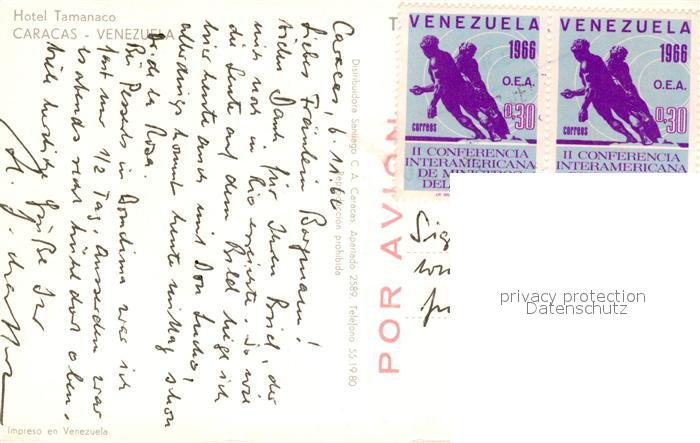 Hotel Tamanaco
CARACAS - VENEZUELA
Caracas, 6. 11. 66
Liebes Fräulein Borgmann!
Vielen Dank für Ihren Brief, der
mich noch in Rio erreichte. So wie
die Leute auf dem Bild liege ich
hier heute auch mit Don Lucho!
allerdings kommt heute mittag schon
de la Rosa.
Bei Pessoas in Bondima war ich
fast nur 1/2 Tag. Ausserdem war
es abends recht kühl dort oben.
Viele herzliche Grüße Ihr
H. J.
Impreso en Venezuela
Distribuidora Santiago C. A. Caracas. Apartado 2589. Teléfono 55.19.80
Reproducción prohibida
POR AVION
VENEZUELA
1966
O.E.A.
0,30
correos
II CONFERENCIA
INTERAMERICANA
DE MINISTROS
DEL
VENEZUELA
1966
O.E.A.
0,30
correos
II CONFERENCIA
INTERAMERICANA
Sig
privacy protection
Datenschutz